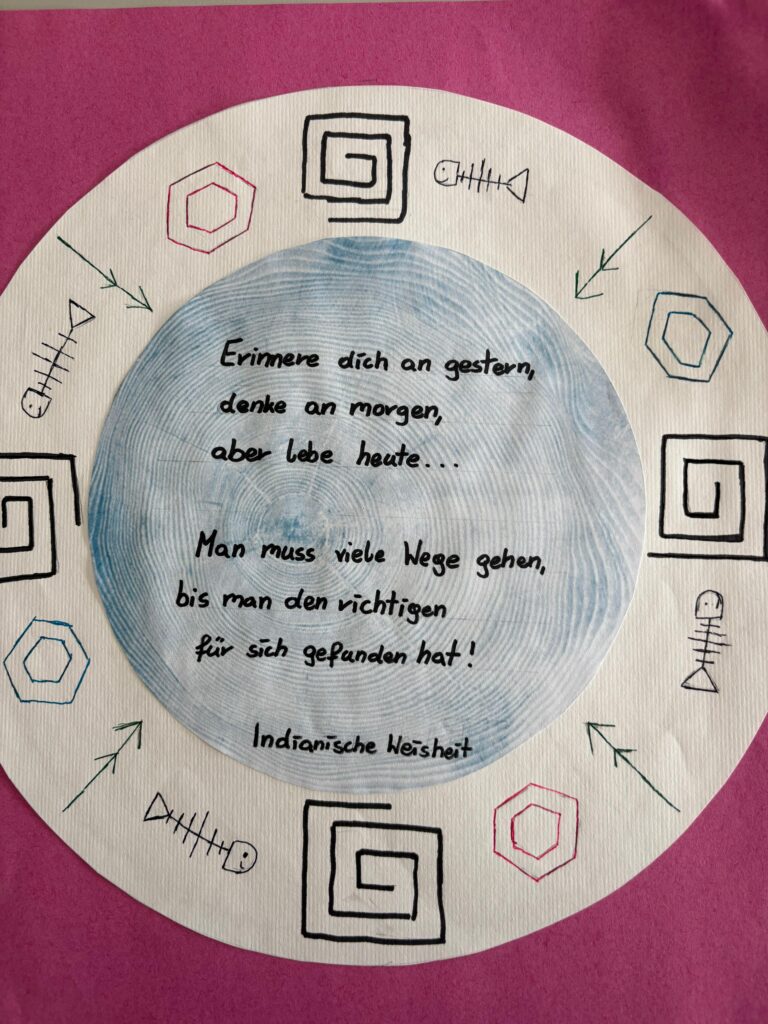 Erinnere dich an gestern,
denke an morgen,
aber lebe heute...
Man muss viele Wege gehen,
bis man den richtigen
für sich gefunden hat!
Indianische Weisheit